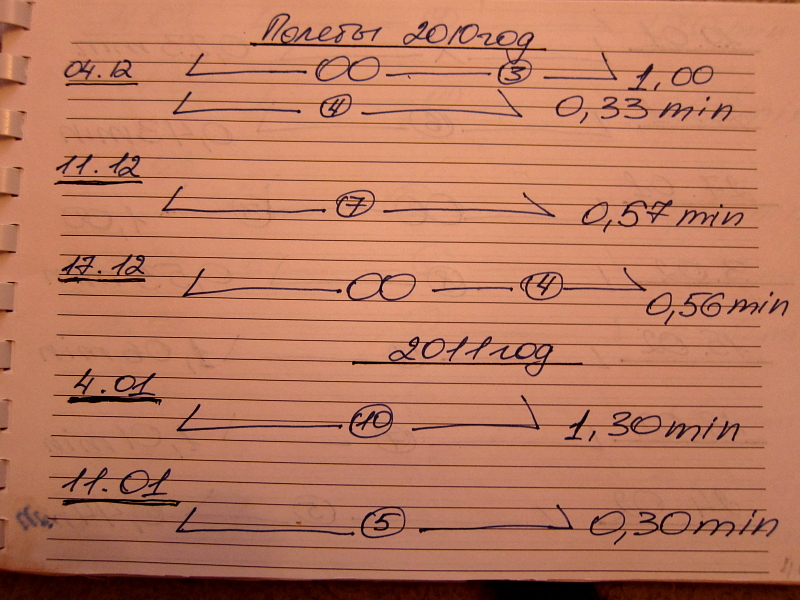 Полеты 2010год
04.12 3 1,00
4 0,33 min
11.12
7 0,57 min
17.12
4 0,56 min
2011 год
4.01
10 1,30 min
11.01
5 0,30 min